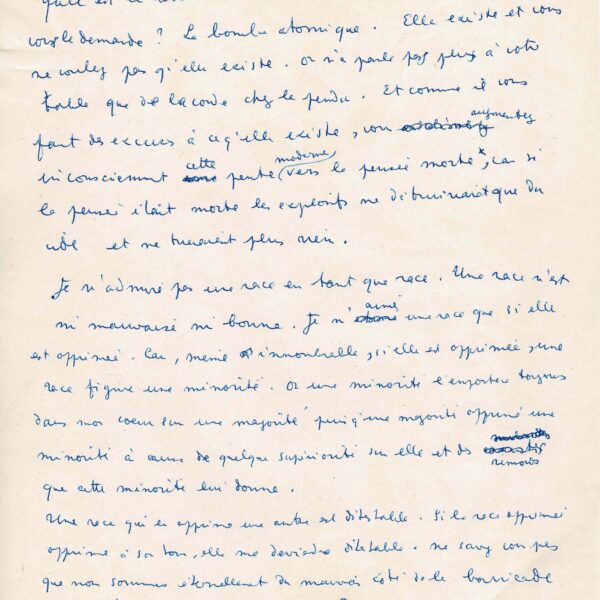 qu'il est
vous le demande ? La bombe atomique. Elle existe et vous
ne voulez pas qu'elle existe. On n'en parle pas plus à votre
table que de la corde chez le pendu. Et comme il vous
faut des excuses à ce qu'elle existe, vous augmentez
inconsciemment cette pente moderne vers la pensée morte*, car si
la pensée était morte les explosifs ne détruiraient que du
vide et ne tueraient plus rien.
Je n'admire pas une race en tant que race. Une race n'est
ni mauvaise ni bonne. Je n'aime une race que si elle
est opprimée. Car, même innombrable, si elle est opprimée, une
race figure une minorité. Or une minorité l'emportera toujours
dans nos coeurs sur une majorité puisqu'une majorité opprime une
minorité à cause de quelque supériorité sur elle et des remords
que cette minorité lui donne.
Une race qui en opprime une autre est détestable. Si la race opprimée
opprime à son tour, elle me deviendra détestable. ne savez vous pas
que nous sommes éternellement du mauvais côté de la barricade